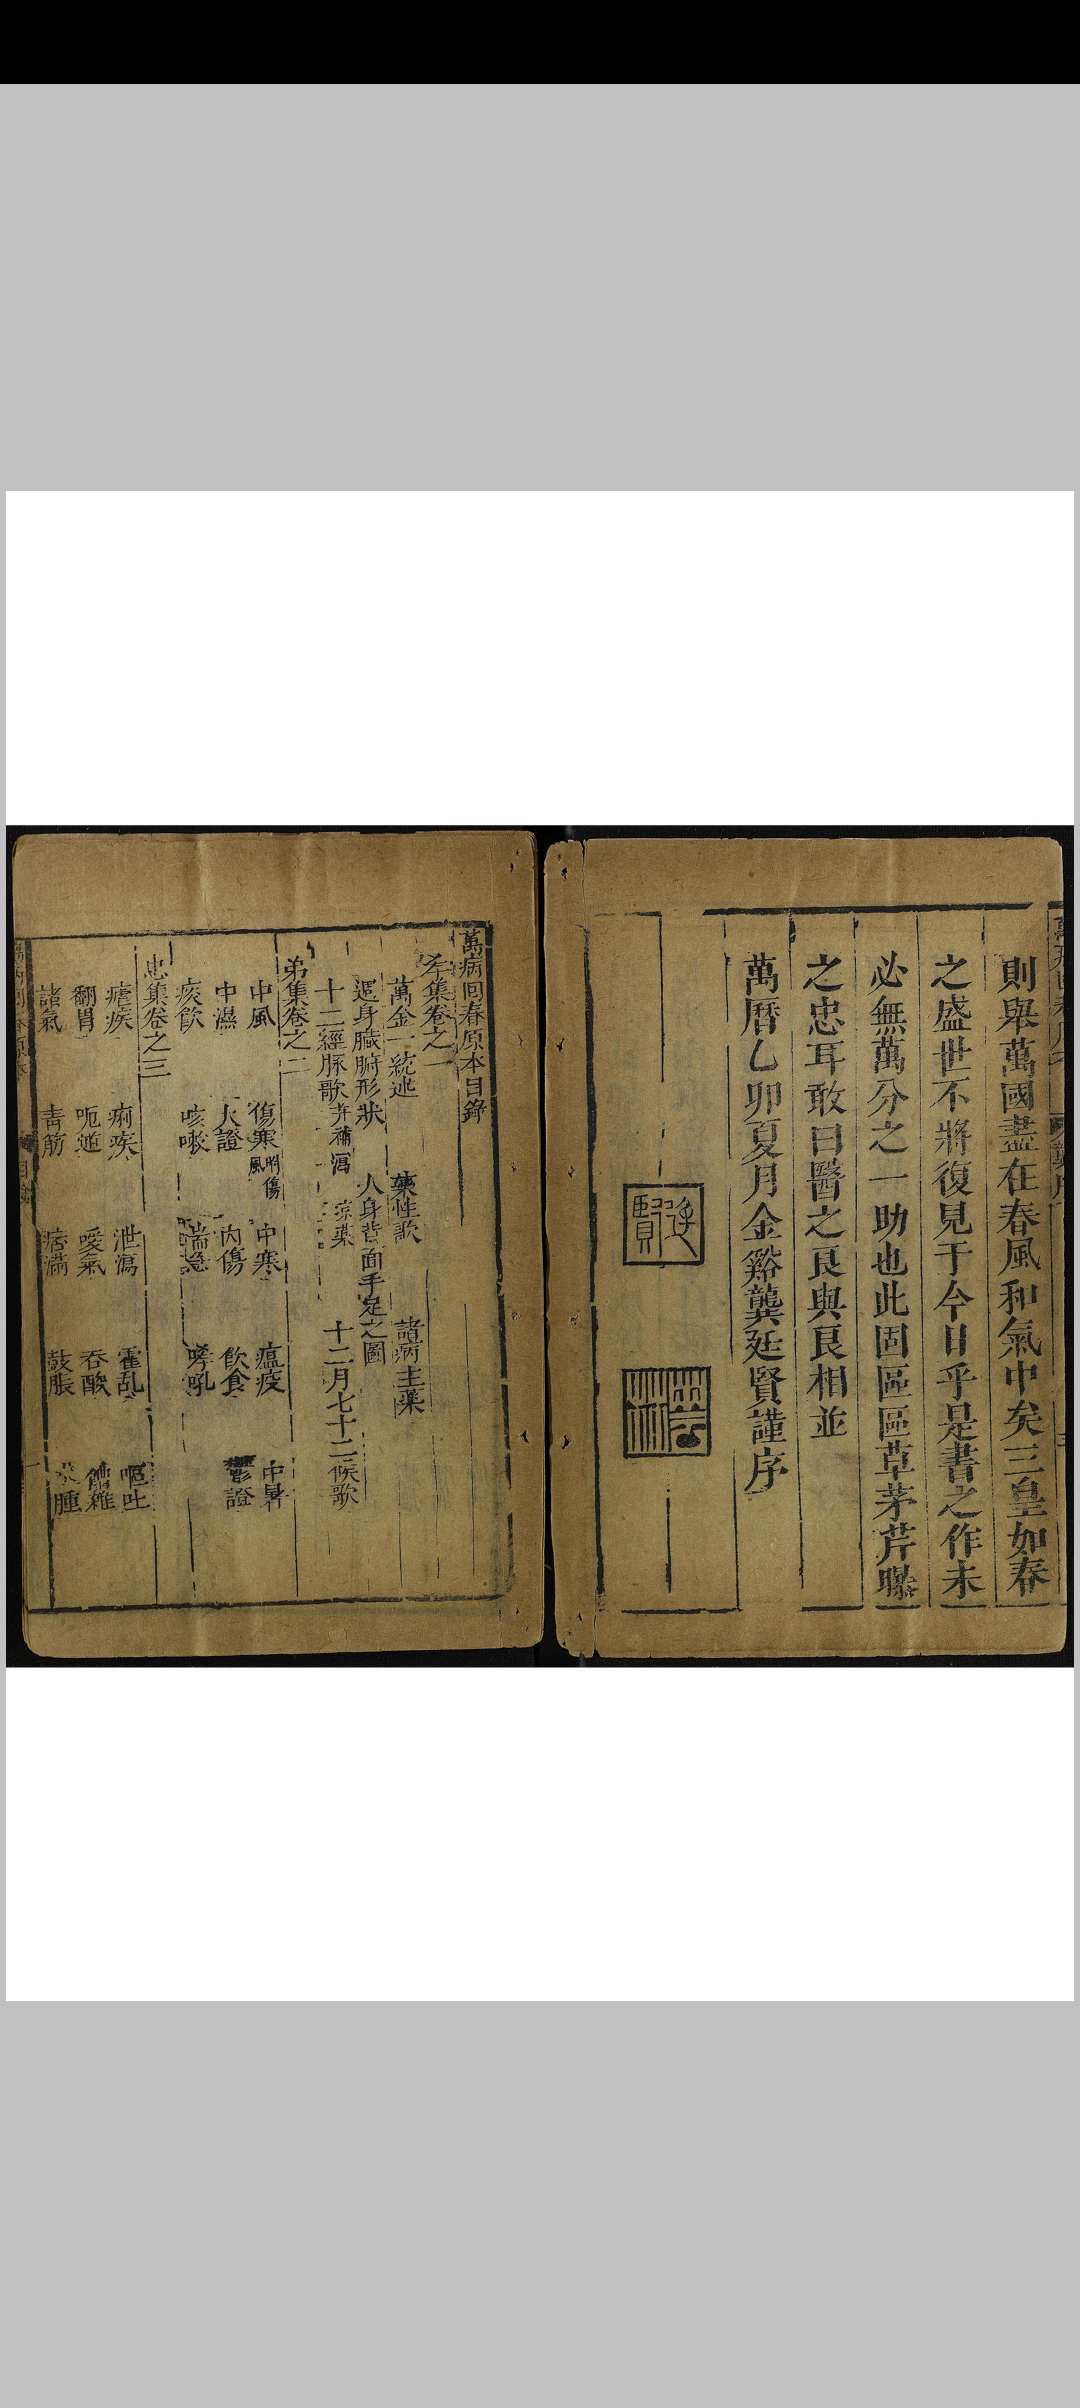 則舉萬國盡在春風和氣中矣三皇如春
之盛世不將復見于今日乎是書之作未
必無萬分之一助也此固區區草茅芹曝
之忠耳敢曰醫之良與良相並
萬曆乙卯夏月金谿龔廷賢謹序
萬病回春原本目錄
孝集卷之一
萬金一統述 藥性歌 諸病主藥
遍身臟腑形狀 人身背面手足之圖
十二經脉歌并補瀉涼藥 十二月七十二候歌
弟集卷之二
中風 傷寒附傷風 中寒 瘟疫 中暑
中濕 火證 內傷 飲食 鬱證
痰飲 咳嗽 喘急 哮吼
忠集卷之三
瘧疾 痢疾 泄瀉 霍亂 嘔吐
翻胃 呃逆 噯氣 吞酸 嘈雜
諸氣 青筋 痞滿 鼓脹 水腫